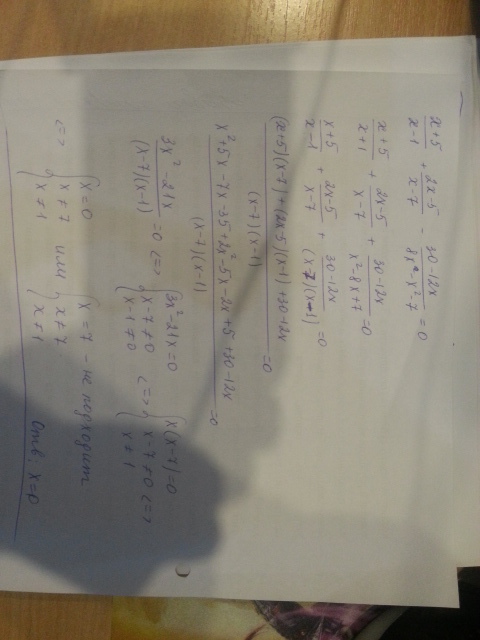 x+5/x-1 + 2x-5/x-7 - 30-12x/8x-x²-7 = 0
x+5/x+1 + 2x-5/x-7 + 30-12x/x²-8x+7 = 0
x+5/x-1 + 2x-5/x-7 + 30-12x/(x-7)(x-1) = 0
(x+5)(x-7)+(2x-5)(x-1)+30-12x/(x-7)(x-1) = 0
x²+5x-7x-35+2x²-5x-2x+5+30-12x/(x-7)(x-1) = 0
3x²-21x/(x-7)(x-1) = 0 <=> { 3x²-21x=0 x-7≠0 x-1≠0 <=> { x(x-7)=0 x-7≠0 x≠1 <=>
<=> { x=0 x≠7 x≠1 или { x=7 - не подходит x≠7 x≠1
Отв: x=0